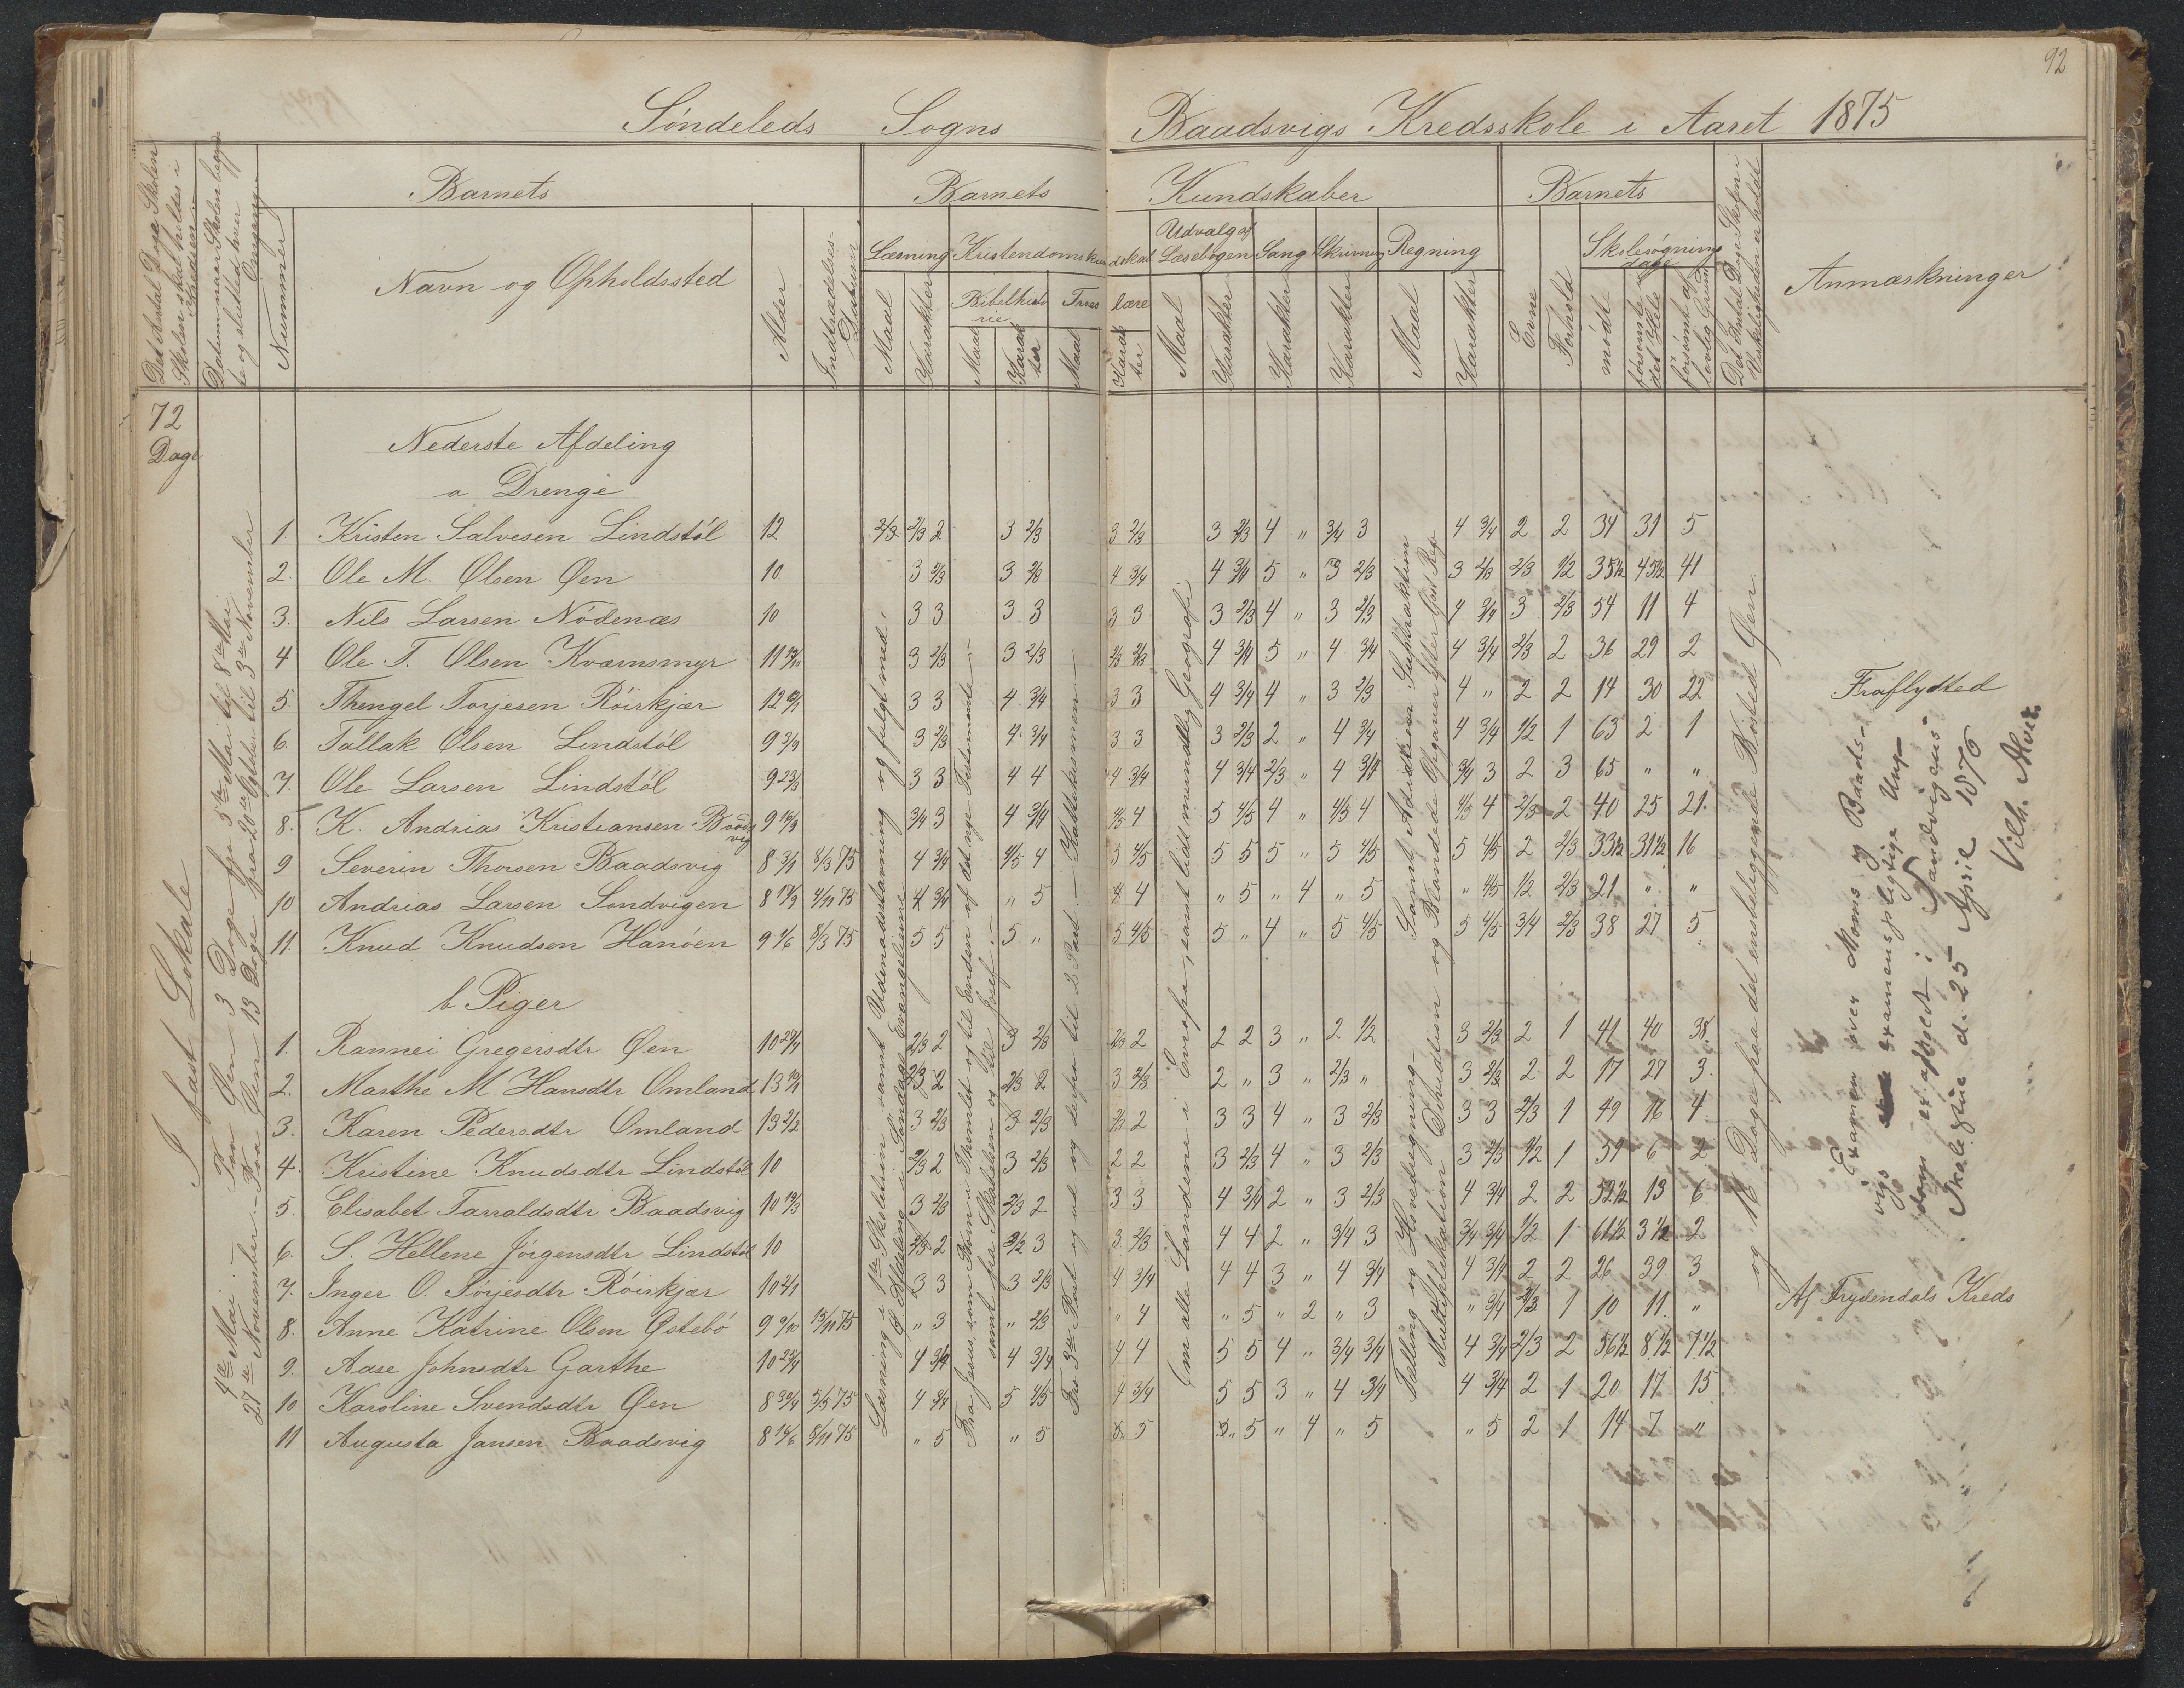 92
Söndeleds Sogns Baadsvigs Kredsskole i Aaret 1875
Det Antal Dage Skolen
Skolen skal holdes i
Kredsen
Datum naar Skolen begyn
te og slutted hver
Omgang
Nummer
Barnets
Navn og Opholdssted
Alder
Indtrædelses-
Datum
Barnets Kundskaber
Læsning
Maal
Karakter
Kristendomskundskab
Bibelhisto
rie
Maal
Karak
ter
Troes lære
Maal
Karak
ter
Udvalg af
Læsebogen
Maal
Karakter
Sang
Karakter
Skrivning
Karakter
Regning
Maal
Karakter
Barnets
Evne
Forhold
Skolesøgnings
dage
mødte
forsömte
det Hele
forsömt af
lovlig Grund
Det Antal Dage Skolen
i Virkeligheden er holdt
Anmærkninger
72
Dage
I fast Lokale
Nederste Afdeling
a Drenge
1. Kristen Salvesen Lindstöl 12 2/3 2/3 2 3 2/3 3 2/3 3 2/3 4 " 3/4 3 4 3/4 2 2 34 31 5
2. Ole M. Olsen Øen 10 3 2/3 3 2/3 4 3/4 4 3/4 5 " 3 2/3 3 2/3 2/3 1/2 35 1/2 45 1/2 41
3. Nils Larsen Nödenæs 10 3 3 3 3 3 3 3 2/3 4 " 3 2/3 4 3/4 3 2/3 54 11 4
4 Ole T. Olsen Kværnsmyr 11 3 2/3 3 2/3 2/3 2/3 4 3/4 5 " 4 3/4 4 3/4 2/3 2 36 29 2
5. Thengel Torjesen Röirkjær 12 3 3 4 3/4 3 3 4 3/4 4 " 3 2/3 4 " 2 2 14 30 22 Fraflydted
6. Tallak Olsen Lindstöl 9 3 2/3 4 3/4 3 3 3 2/3 2 " 4 3/4 4 3/4 1/2 1 63 2 1
7. Ole Larsen Lindstöl 9 3 3 4 4 4 3/4 4 3/4 2/3 " 4 3/4 3/4 3 2 3 65 " "
8. K. Andrias Kristiansen Baads
vig 9 3/4 3 4 3/4 4/5 4 5 4/5 4 " 4/5 4 4/5 4 2/3 2 40 25 21
9 Severin Thorsen Baadsvig 8 8/3 75 4 3/4 4/5 4 5 4/5 5 5 5 " 5 4/5 5 4/5 2 2/3 33 1/2 31 1/2 16
10 Andrias Larsen Sandvigen 8 4/11 75 4 3/4 " 5 4 4 " 5 " 4 " 5 " 4/5 1/2 2/3 21 " "
11. Knud Knudsen Hanöen 9 8/3 75 5 5 5 " 5 4/5 5 " 4 " 5 4/5 5 4/5 3/4 2/3 38 27 5
b Piger
1. Rannei Gregersdtr Øen 10 2/3 2 3 2/3 2/3 2 2 2 3 " 2 1/2 3 2/3 2 1 41 40 38
2. Marthe M. Hansdtr Omland 13 2/3 2 2/3 2 3 2/3 2 " 3 " 2/3 " 3 2/3 2 2 17 27 3
3. Karen Pedersdtr Omland 13 3 2/3 3 2/3 2/3 2 3 3 4 " 3 2/3 3 3 2/3 1 49 16 4
4. Kristine Knudsdtr Lindstöl 10 2/3 2 3 2/3 2 2 3 2/3 4 " 3 2/3 3 2/3 1/2 1 59 6 2
5. Elisabet Tarraldsdtr Baadsvig 10 3 2/3 2/3 2 3 3 4 3/4 2 " 3 2/3 4 3/4 2 2 52 1/2 13 6
6. S. Hellene Jörgensdtr Lindstöl 10 2/3 2 3 3 2/3 4 4 2 " 3/4 3 3/4 3/4 1/2 1 61 1/2 3 1/2 2
7. Inger O. Torjesdtr Röirkjær 10 3 3 3 2/3 4 3/4 4 4 3 " 4 3/4 4 3/4 2 2 26 39 3
8. Anne Katrine Olsen Østebö 9 13/11 75 " 3 " 2/3 " 4 " 5 " 2 " 3 " 3/4 2/3 1 10 11 " Af Frydendals Kreds
9. Aase Johnsdtr Garthe 10 4 3/4 4 3/4 4 4 5 5 4 " 3/4 3/4 4 3/4 2/3 2 56 1/2 8 1/2 7 1/2
10 Karoline Svendsdtr Øen 8 5/5 75 4 3/4 5 4/5 4 3/4 5 5 3 " 4 3/4 4 3/4 2 1 20 17 15
11 Augusta Jansen Baadsvig 8 8/11 75 " 5 " 5 " 5 " 5 " 4 " 5 " 5 2 1 14 7 "
Paa Øen 3 Dage fra 5te Mai til 8de Mai
Paa Øen 13 Dage fra 20de Oktbr til 3de November
4de Mai
27de November
Læsning i 1ste Skoletrin samt Udenadslæsning og fulgt med i
Ø Afdeling i Søndags Evangelierne
Fra Jesus som Barn i Templet og til Enden af det nye Testamente
samt fra Skabelsen og til Josef
Fra 3die Part og ud og derfra til 2 Part Kattekismen
Om alle Landene i Evropa, samt lidt mundtlig Geografi
Tælling og Hovedregning Samt Adition Subtraktion
Multiplikation Division og Blandede Opgaver efter Godt Reg.
og 16 Dage paa det enkeltliggende Bosted Øen
Examen over Moens og Baads-
vigs examenspligtige Ung-
dom er afholdt i Sandvigens
Skolestue d. 25 April 1876
Vilh. Alver.